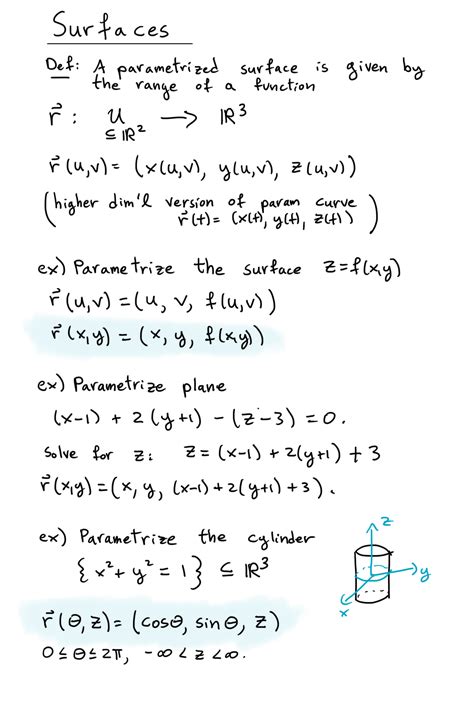 Surfaces
Def: A parametrized surface is given by
the range of a function
r⃗ : U ⟶ ℝ³
⊆ ℝ²
r⃗(u,v) = (x(u,v), y(u,v), z(u,v))
(higher dim'l version of param curve
r⃗(t) = (x(t), y(t), z(t)))
ex) Parametrize the surface z=f(x,y)
r⃗(u,v) = (u, v, f(u,v))
r⃗(x,y) = (x, y, f(x,y))
ex) Parametrize plane
(x-1) + 2(y+1) - (z-3) = 0.
Solve for z: z = (x-1) + 2(y+1) + 3
r⃗(x,y) = (x, y, (x-1) + 2(y+1) + 3).
ex) Parametrize the cylinder
{x² + y² = 1} ⊆ ℝ³
r⃗(θ, z) = (cosθ, sinθ, z)
0 ≤ θ ≤ 2π, -∞ < z < ∞.
z
y
x